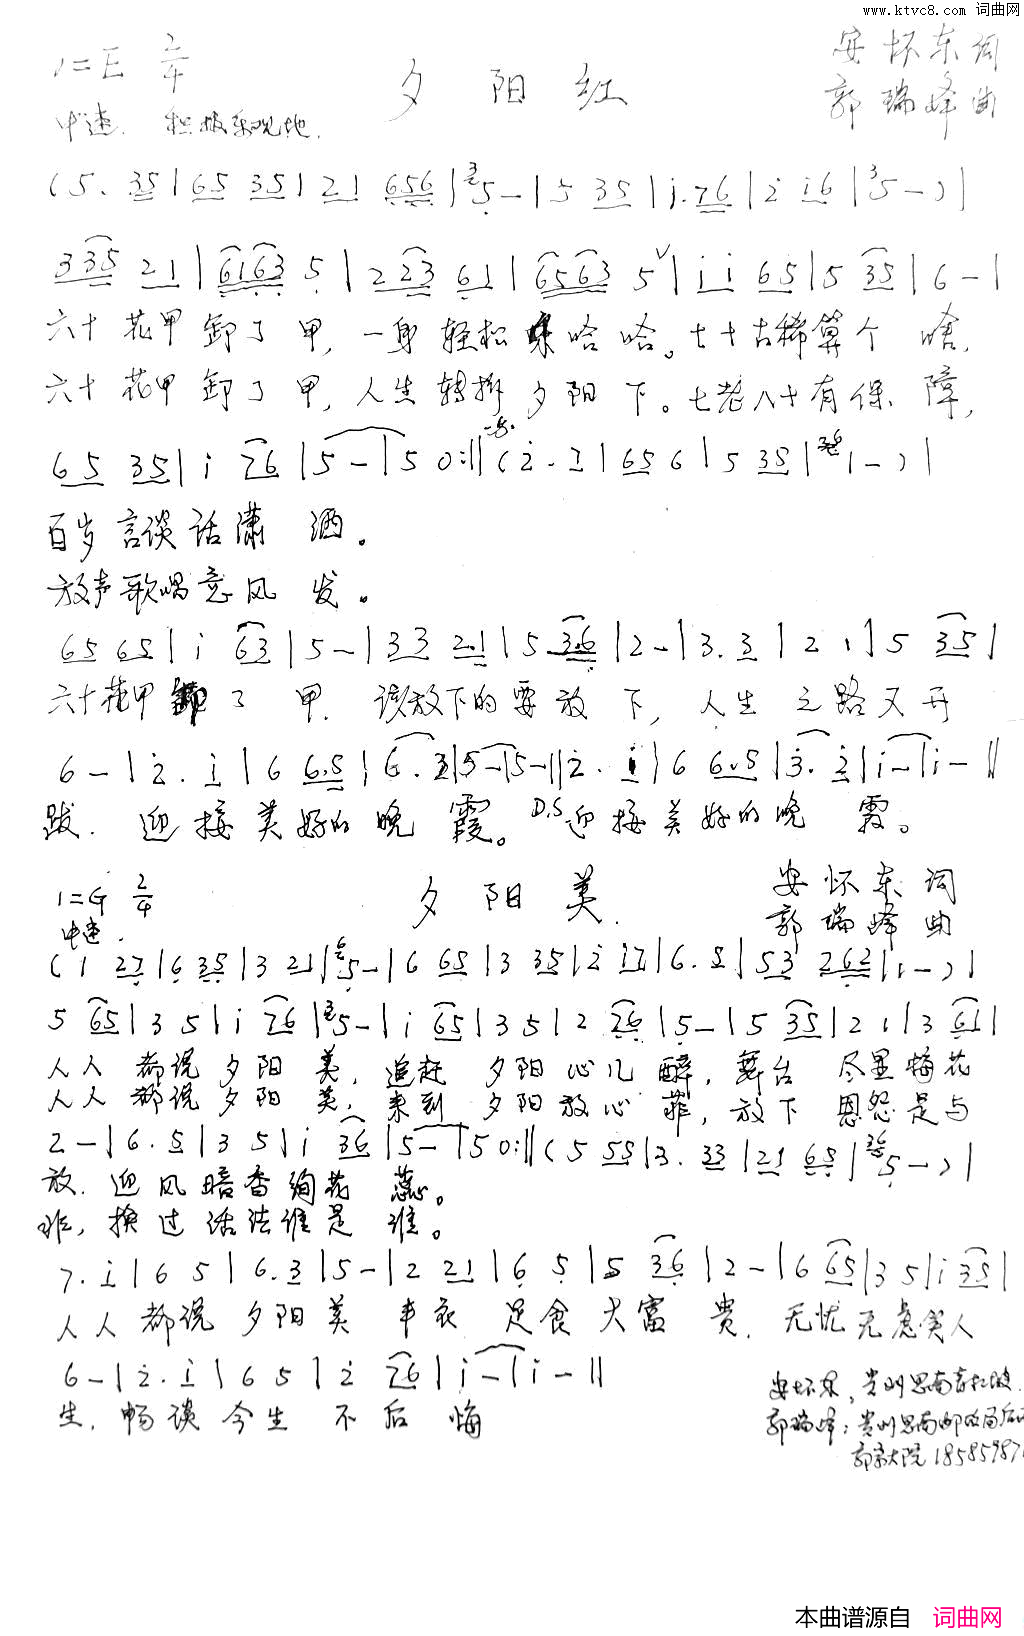 www.ktvc8.com 词曲网
1=E 2/4 夕阳红 安怀东词
中速. 积极乐观地. 郭瑞峰曲
(5. 35|65 35|21 656|5-|5 35|i.76|i i6|5-)|
335 21|6163 5|223 61|6563 5|ii 65|5 35|6-|
六十花甲卸了甲,一身轻松 哈哈。七十古稀算个啥,
六十花甲卸了甲,人生转折夕阳下。七老八十有保障,
65 35|i 76|5-|5 0:‖(2.1|65 6|5 35|1-)|
百岁言谈话潇洒。
放声歌唱意风发。
65 65|i 63|5-|33 2.1|5 3.6|2-|3.3|2 1|5 35|
六十花甲卸了甲.该放下的要放下,人生之路又开
6-|2.i|6 6.5|6.3|5-|5-‖2.i|6 6.5|3.2|i-|i-‖
跋.迎接美好的晚霞。D.S迎接美好的晚霞。
1=G 2/4 夕阳美. 安怀东词
中速. 郭瑞峰曲
(1 27|6 35|3 21|5-|6 65|3 35|2 17|6.5|53 262|1-)|
5 65|3 5|i 76|5-|i 65|3 5|2 76|5-|5 35|2 1|3 61|
人人都说夕阳美,追赶夕阳心儿醉,舞台尽显梅花
人人都说夕阳美,来到夕阳放心菲,放下恩怨是与
2-|6.5|3 5|i 36|5-|5 0:‖(5 55|3.33|21 65|5-)|
放.迎风暗香绚花蕊。
非,换过活法谁是谁。
7.i|6 5|6.3|5-|2 21|6 5|5 36|2-|6 65|3 5|i 35|
人人都说夕阳美丰衣足食大富贵.无忧无虑笑人
6-|2.i|6 5|2 76|i-|i-‖
生.畅谈今生不后悔
安怀东,贵州思南青杠坡.
郭瑞峰:贵州思南邮政局后
郭家大院 18585987
本曲谱源自 词曲网